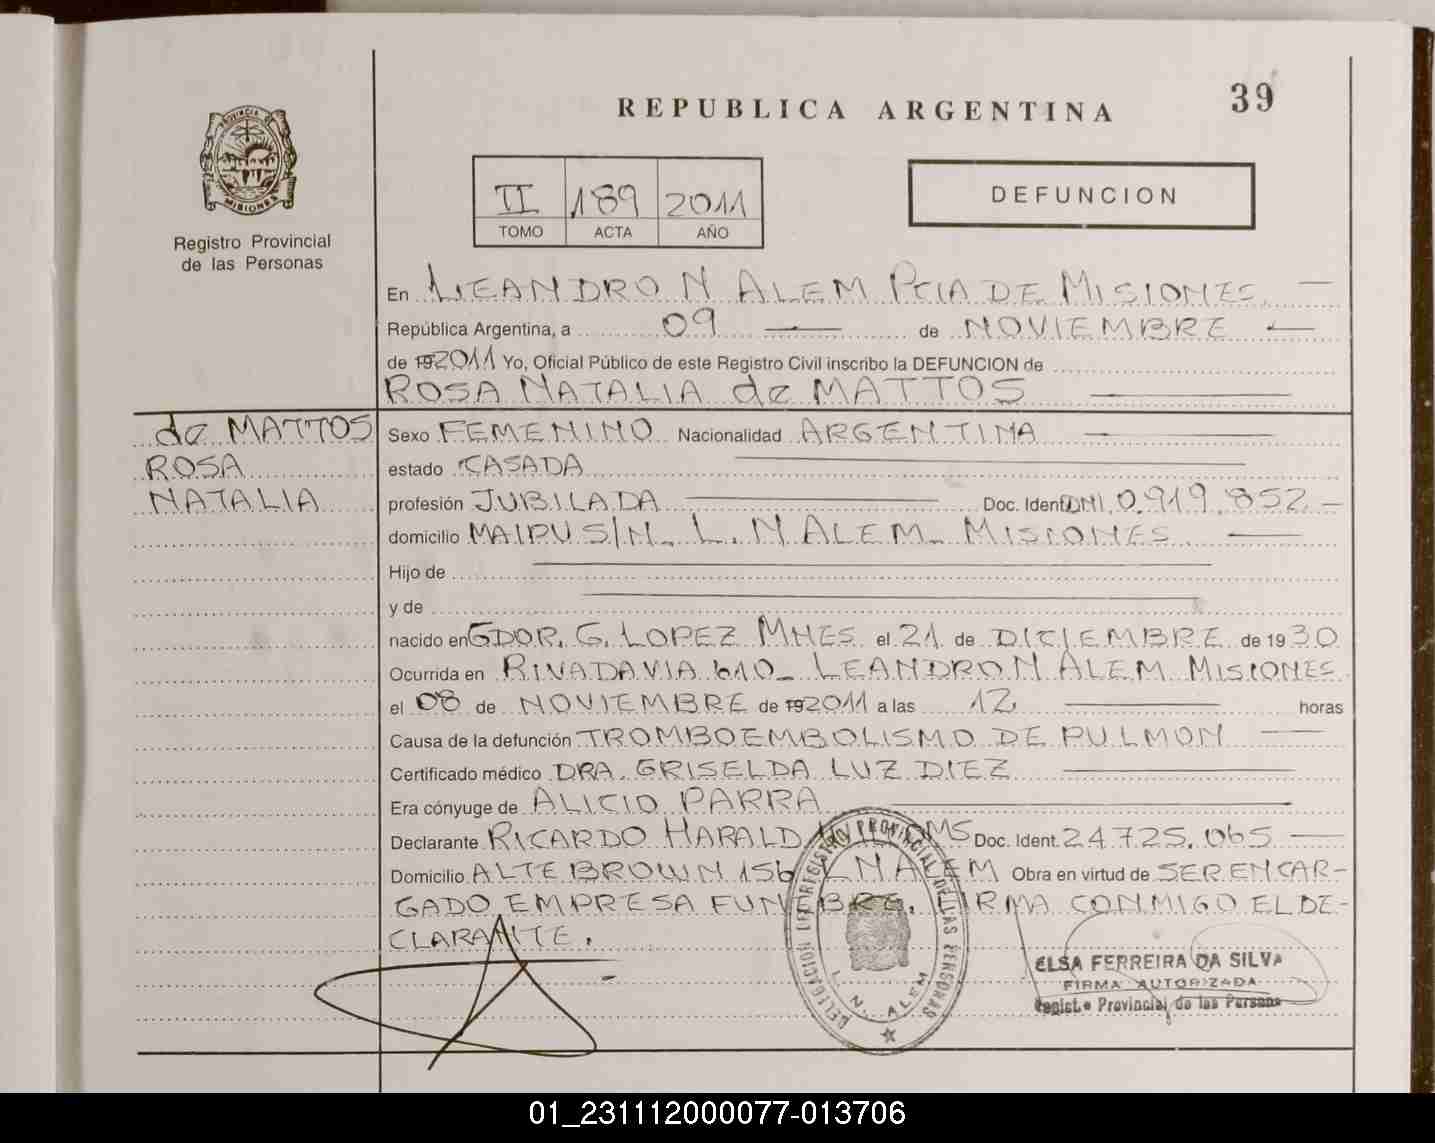 39
REPUBLICA ARGENTINA
PROVINCIA DE
MISIONES
Registro Provincial
de las Personas
II 189 2011
TOMO ACTA AÑO
DEFUNCION
En LEANDRO N ALEM PCIA DE MISIONES
República Argentina, a 09 de NOVIEMBRE
de 19 2011 Yo, Oficial Público de este Registro Civil inscribo la DEFUNCION de
ROSA NATALIA de MATTOS
de MATTOS
ROSA
NATALIA
Sexo FEMENINO Nacionalidad ARGENTINA
estado CASADA
profesión JUBILADA Doc. Ident. DNI 0.919.852
domicilio MAIPU S/N. L. N ALEM. MISIONES
Hijo de
y de
nacido en GDOR. G. LOPEZ MNES el 21 de DICIEMBRE de 1930
Ocurrida en RIVADAVIA 610_ LEANDRO N ALEM MISIONES
el 08 de NOVIEMBRE de 19 2011 a las 12 horas
Causa de la defunción TROMBOEMBOLISMO DE PULMON
Certificado médico DRA. GRISELDA LUZ DIEZ
Era cónyuge de ALICIO PARRA
Declarante RICARDO HARALD Doc. Ident. 24.725.065
Domicilio ALTE BROWN 156 L N ALEM Obra en virtud de SER ENCAR-
GADO EMPRESA FUNEBRE. FIRMA CONMIGO EL DE-
CLARANTE.
DELEGACION DEL REGISTRO PROVINCIAL DE LAS PERSONAS
L. N. ALEM
ELSA FERREIRA DA SILVA
FIRMA AUTORIZADA
Registro Provincial de las Personas
01_231112000077-013706